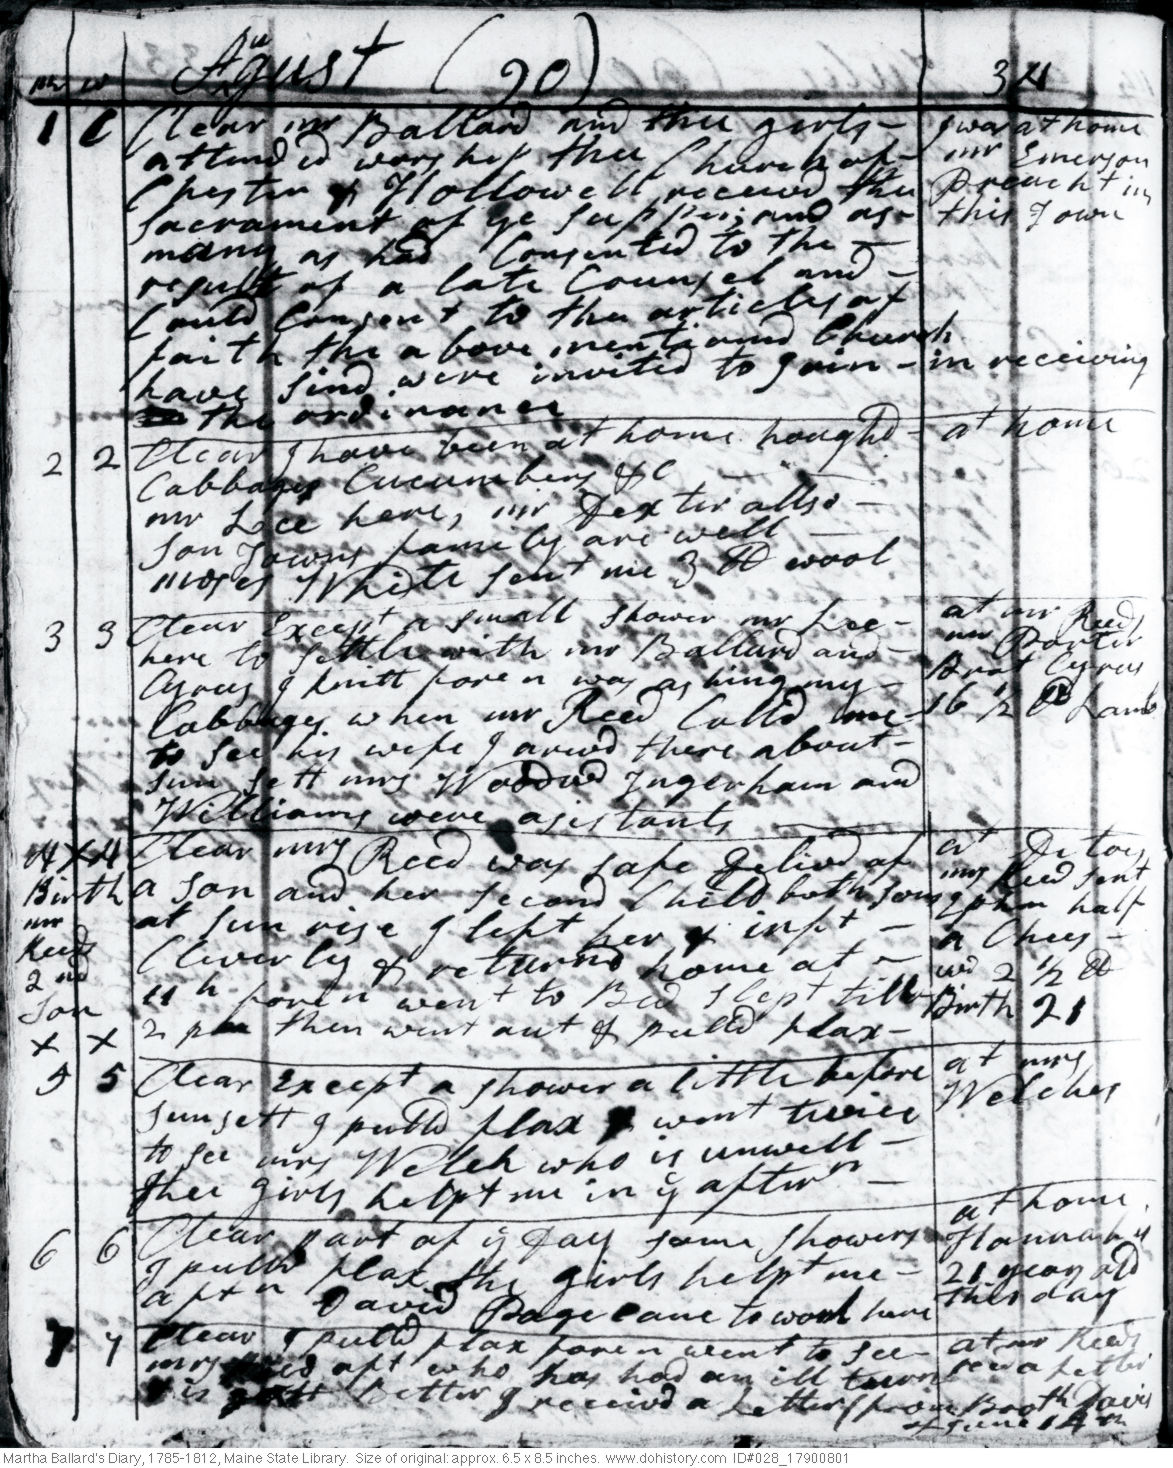 Agust (90) 34
m w
1 C Clear mr Ballard and the girls - I was at home
attended worship the Church of - mr Emerson
Chester & Hollowell receivd the Preacht in
Sacrament of ye Supper, and as - this Town
many as had Consented to the -
result of a late Counsel and -
Could Consent to the articles of
faith the above mentiond Church
have Sind were invited to Join - in receiving
the ordinance
2 2 Clear I have been at home houghd - at home
Cabbages Cucumbers &C
mr Lee here, mr Dexter allso -
son Towns family are well -
moses White sent me 3 lb wool
3 3 Clear Except a small shower mr Lee - at mr Reeds
here to settle with mr Ballard and - mr Porter
Cyrus I knitt foren was ashing my - Brot Cyrus
Cabbages when mr Reed Calld me - 16 1/2 lb Lamb
to see his wife I arivd there about -
sun sett mrs Woodwd Ingerham and
Williams were asistants
4 X 4 Clear mrs Reed was safe Delivd of at Ditoes
Birth a son and her second Child both sons mrs Reed sent
mr at sun rise I left her & inft - Ephm half
Reeds Cleverly & returnd home at - a Chees -
2nd 11h foren went to Bed slept till wd 2 1/2 lb
Son 2 pm then went out & pulld flax - Birth 21
X X
5 5 Clear Except a shower a little before at mrs
sunsett I pulld flax & went twice Welches
to see mrs Welch who is unwell -
the girls helpt me in ye aftern -
6 6 Clear part of ye Day some showers at home
I pulld flax the girls helpt me - Hannah is
aftn David Page came to work here 21 years old
this day
7 7 Clear I pulld flax foren went to see - at mr Reeds
mrs Reed aft who has had an ill turn recd a Letter
is gott Better I receivd a Letter from Booth Davis
of June 14th
Martha Ballard's Diary, 1785-1812, Maine State Library. Size of original: approx. 6.5 x 8.5 inches. www.dohistory.com ID#028_17900801